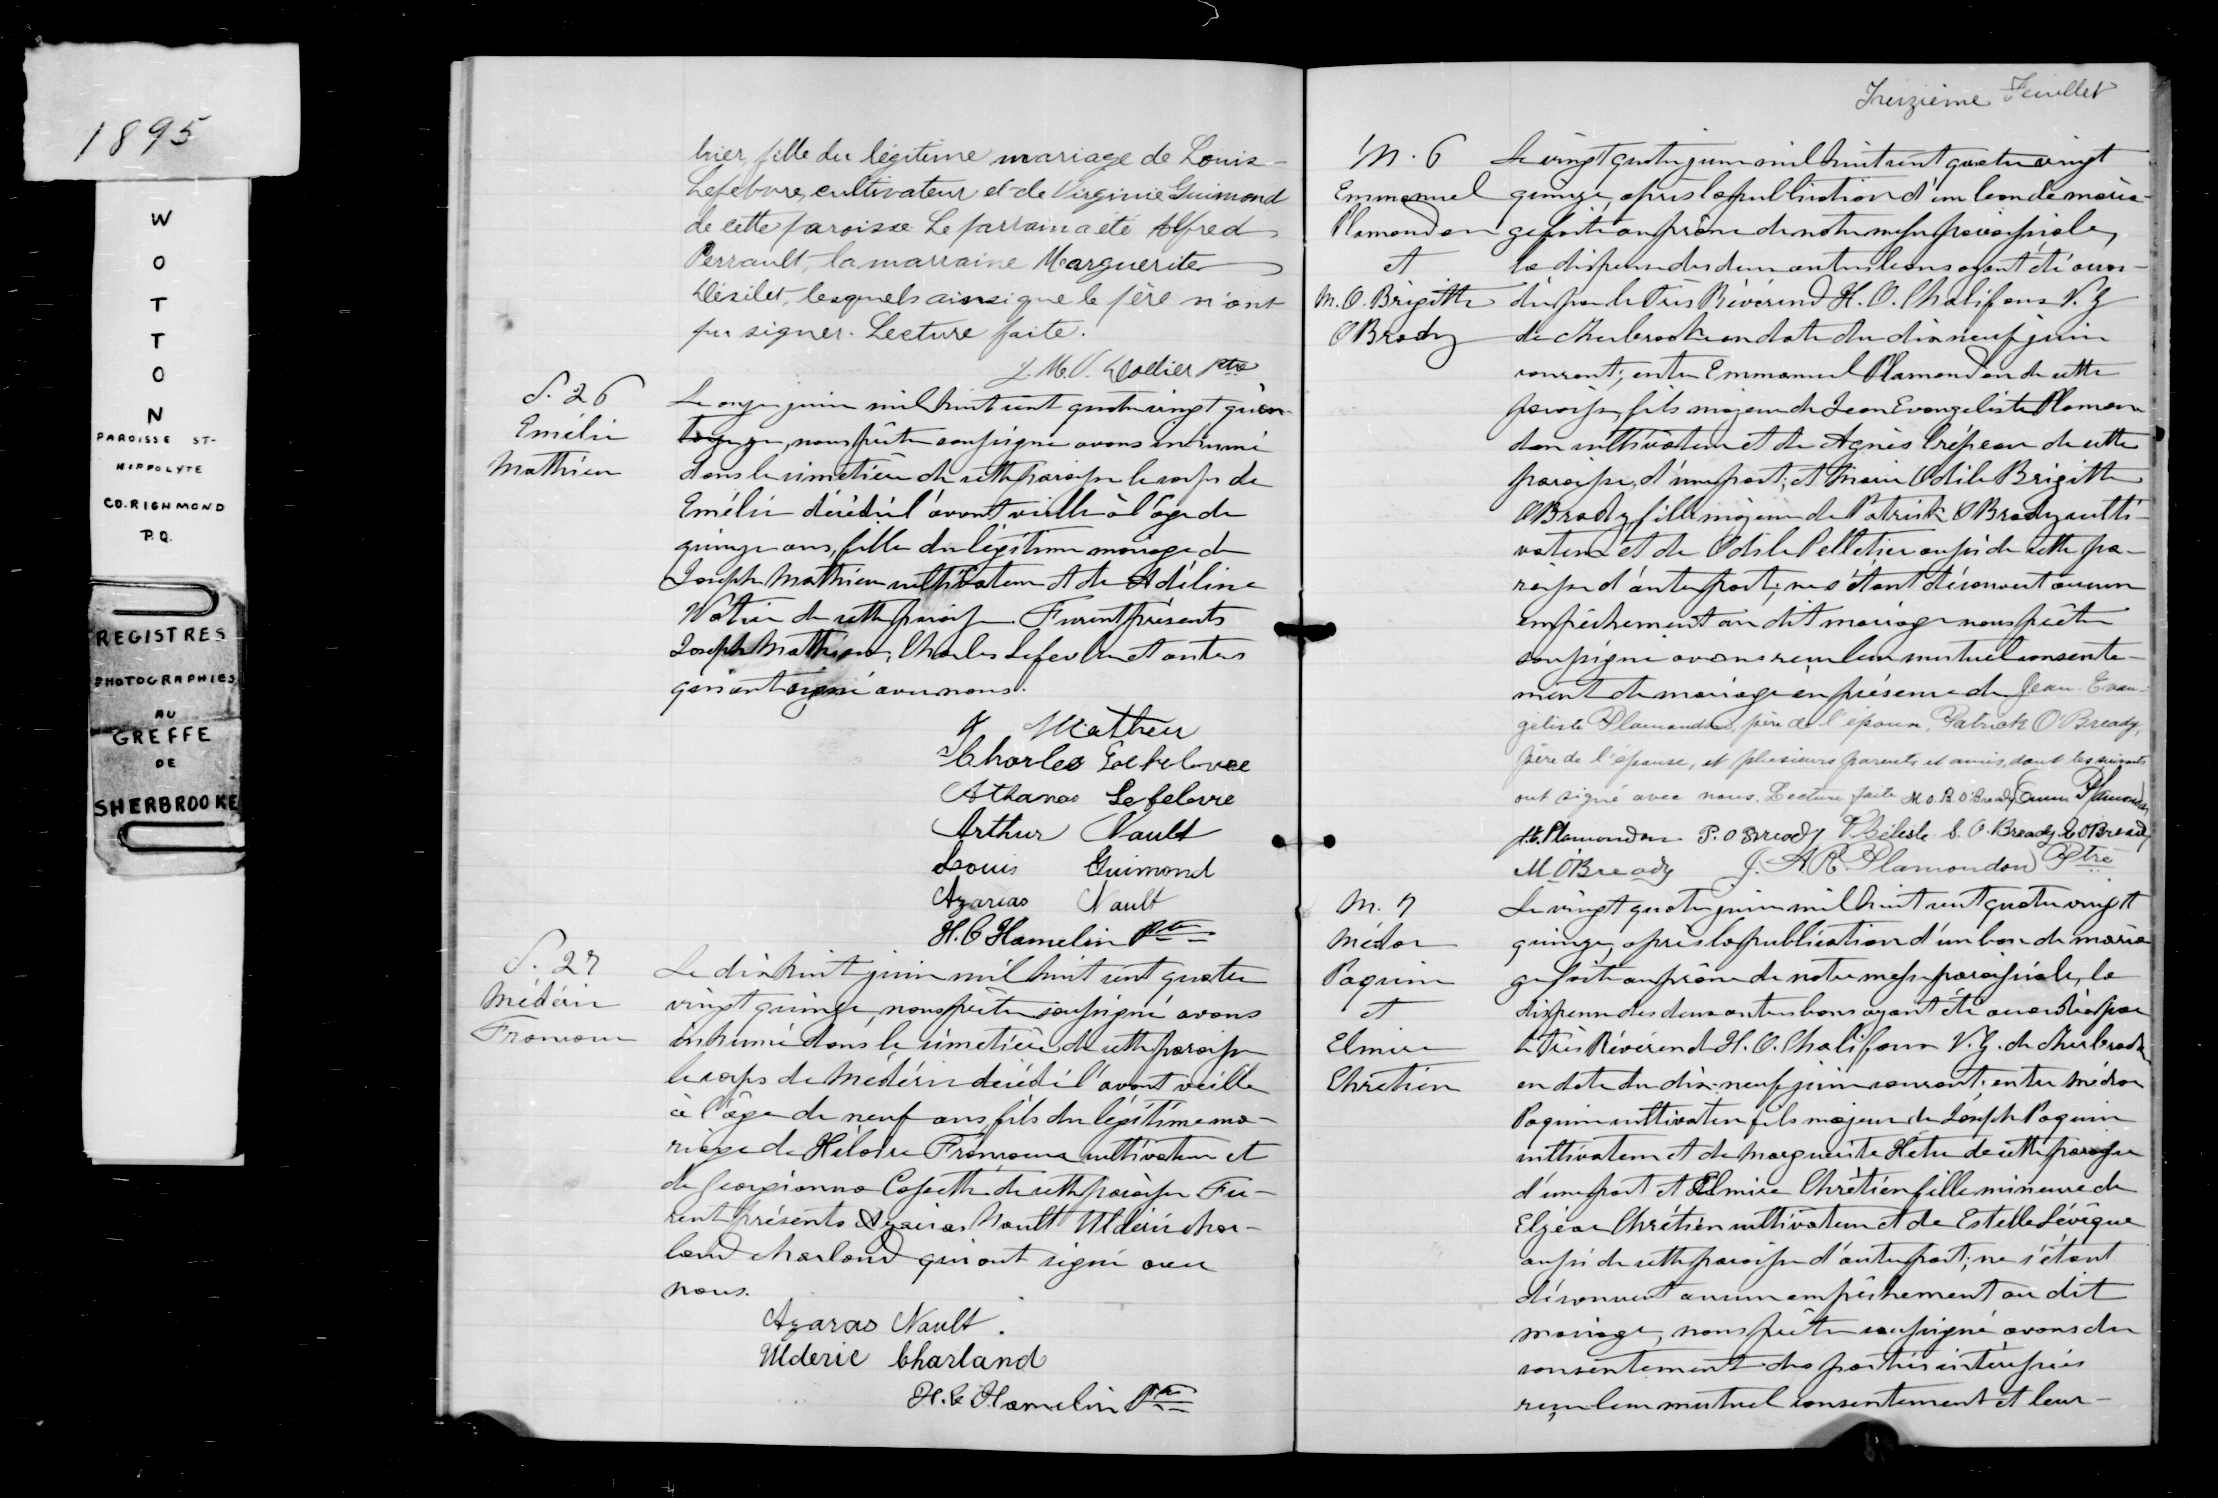 1895
W
O
T
T
O
N
PAROISSE ST-
HIPPOLYTE
CO. RICHMOND
P.Q.
REGISTRES
PHOTOGRAPHIES
AU
GREFFE
DE
SHERBROOKE
hier, fille du légitime mariage de Louis
Lefebvre, cultivateur et de Virginie Guimond
de cette paroisse. Le parrain a été Alfred
Perrault, la marraine Marguerite
Désilet, lesquels ainsi que le père n'ont
pu signer. Lecture faite.
Ptre
S. 26
Emélie
Mathieu
Le onze juin mil huit cent quatre vingt quin-
ze, nous prêtre soussigné avons inhumé
dans le cimetière de cette paroisse le corps de
Emélie décédée l'avant veille à l'âge de
quinze ans, fille du légitime mariage de
Joseph Mathieu cultivateur et de Adéline
de cette paroisse. Furent présents
Joseph Mathieu, Charles Lefebvre et autres
qui ont signé avec nous.
J Mathieu
Charles Lefebvre
Athanas Lefebvre
Arthur Nault
Louis Guimond
Azarias Nault
H. C Hamelin Ptre
S. 27
Médéric
Le dix huit juin mil huit cent quatre
vingt quinze, nous prêtre soussigné avons
inhumé dans le cimetière de cette paroisse
le corps de Médéric décédé l'avant veille
à l'âge de neuf ans, fils du légitime ma-
riage de cultivateur et
de Georgianna de cette paroisse Fu-
rent présents Azarias Nault Uldéric Char-
land Charland qui ont signé avec
nous.
Azaras Nault.
Ulderic Charland
H. C Hamelin Ptre
Treizième Feuillet
M. 6
Emmanuel
Plamondon
et
M. O. Brigitte
OBrady
Le vingt quatre juin mil huit cent quatre vingt
quinze, après la publication d'un ban de maria-
ge faite au prône de notre messe paroissiale,
la dispense des deux autres bans ayant été accor-
dée par le Très Révérend H. O. Chalifoux V. G
de Sherbrooke en date du dix neuf juin
courant; entre Emmanuel Plamondon de cette
paroisse, fils majeur de Jean Evangéliste Plamon-
don cultivateur et de Agnès Crépeau de cette
paroisse, d'une part; et Marie Odile Brigitte
OBrady fille majeure de Patrick OBrady culti-
vateur et de Odile Pelletier aussi de cette pa-
roisse d'autre part; ne s'étant découvert aucun
empêchement au dit mariage nous prêtre
soussigné avons reçu leur mutuel consente-
ment de mariage en présence de Jean-Evan-
géliste Plamondon, père de l'époux, Patrick O'Bready,
père de l'épouse, et plusieurs parents et amis, dont les suivants
ont signé avec nous. Lecture faite M. O. B. O'Bready Emm Plamondon
J. E. Plamondon P. O Bready P. Béliste C. O. Bready E O'Bready
M O'Bready J. A R. Plamondon Ptre
M. 7
Médor
Paquin
et
Elmire
Chrétien
Le vingt quatre juin mil huit cent quatre vingt
quinze, après la publication d'un ban de maria
ge fait au prône de notre messe paroissiale, la
dispense des deux autres bans ayant été accordée par
le Très Révérend H. O. Chalifoux V. G. de Sherbrooke
en date du dix-neuf juin courant; entre Médor
Paquin cultivateur fils majeur de Joseph Paquin
cultivateur et de Marguerite Hétu de cette paroisse
d'une part et Elmire Chrétien fille mineure de
Elzéar Chrétien cultivateur et de Estelle Lévêque
aussi de cette paroisse d'autre part; ne s'étant
découvert aucun empêchement au dit
mariage, nous prêtre soussigné avons du
consentement des parties intéressées
reçu leur mutuel consentement et leur